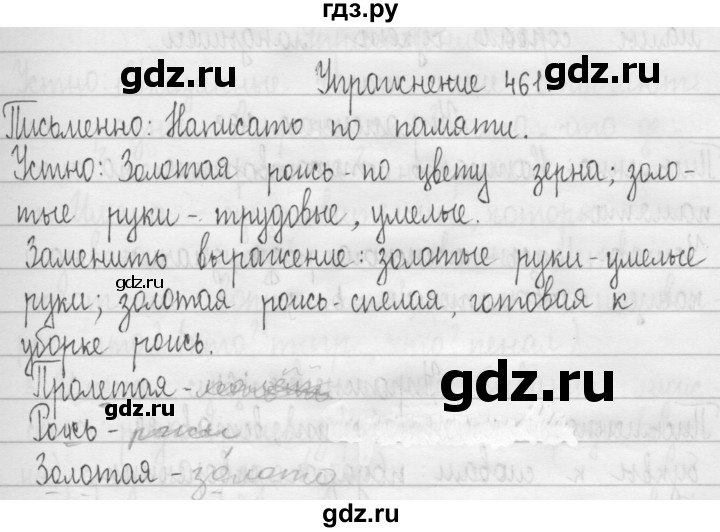 гдз.ру
gdz.ru gdz.ru
Упражнение 461.
Письменно: Написато по памяти.
Устно: Золотая рожь - по цвету зерна; золо-
тые руки - трудовые, умелые.
gdz.ru gdz.ru
Заменить выражение: золотые руки - умелые
gdz.ru
руки; золотая рожь - спелая, готовая к
уборке рожь.
gdz.ru
Пролетая -
Рожь -
Золотая - золото
gdz.ru gdz.ru